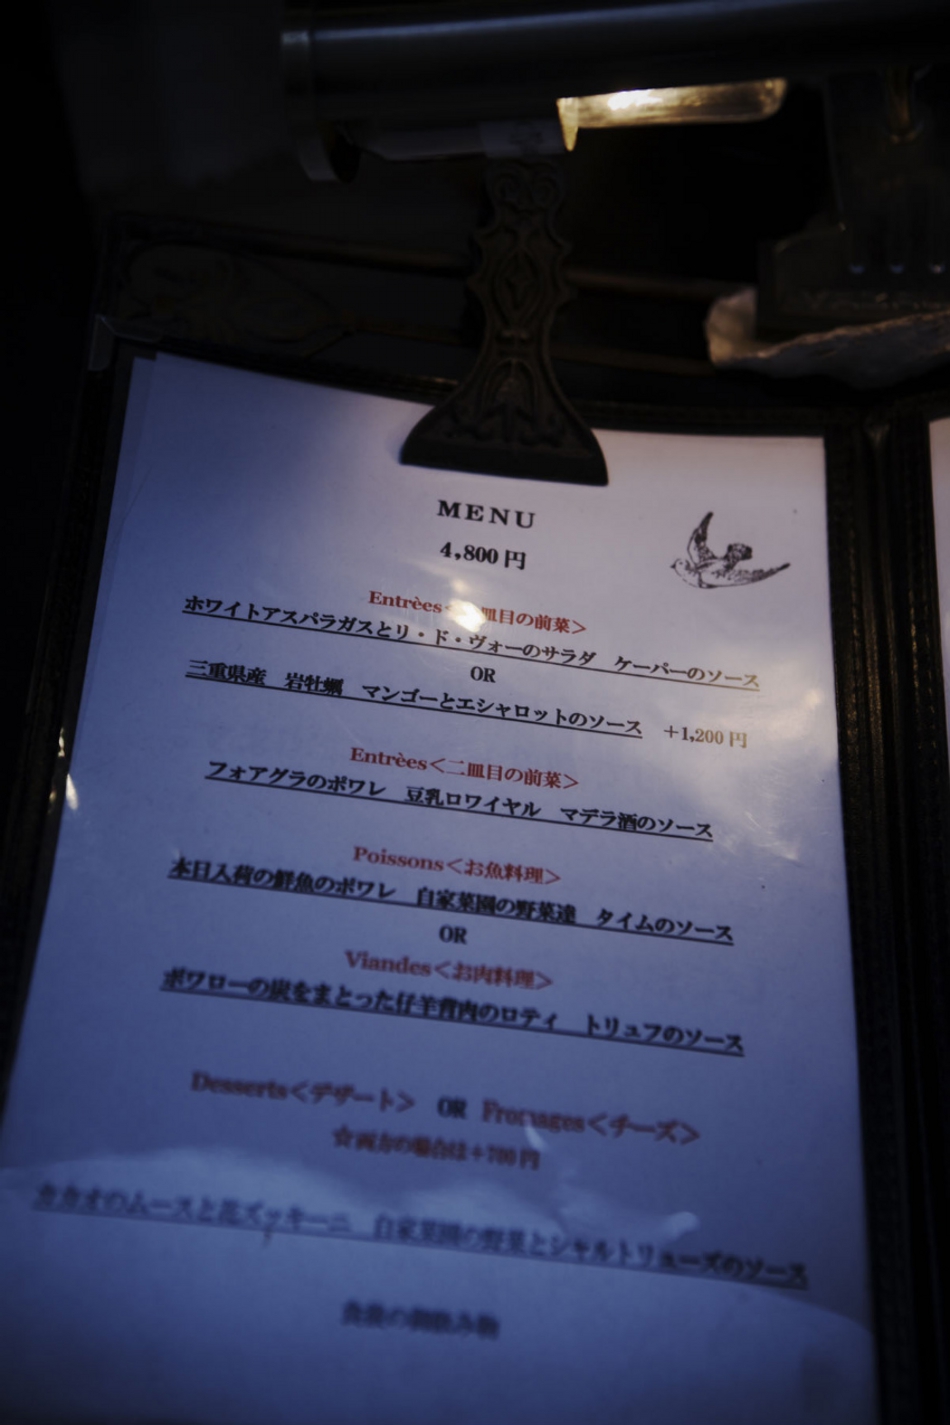 MENU
4,800円
Entrèes< 皿目の前菜>
ホワイトアスパラガスとリ・ド・ヴォーのサラダ　ケーパーのソース
OR
三重県産　岩牡蠣　マンゴーとエシャロットのソース　+1,200円
Entrèes<二皿目の前菜>
フォアグラのポワレ　豆乳ロワイヤル　マデラ酒のソース
Poissons<お魚料理>
本日入荷の鮮魚のポワレ　自家菜園の野菜達　タイムのソース
OR
Viandes<お肉料理>
ポワローの炭をまとった仔羊背肉のロティ　トリュフのソース
Desserts<デザート>　OR　Fromages<チーズ>
☆両方の場合は+700円
カカオのムースと花ズッキーニ　自家菜園の野菜とシャルトリューズのソース
食後の御飲み物